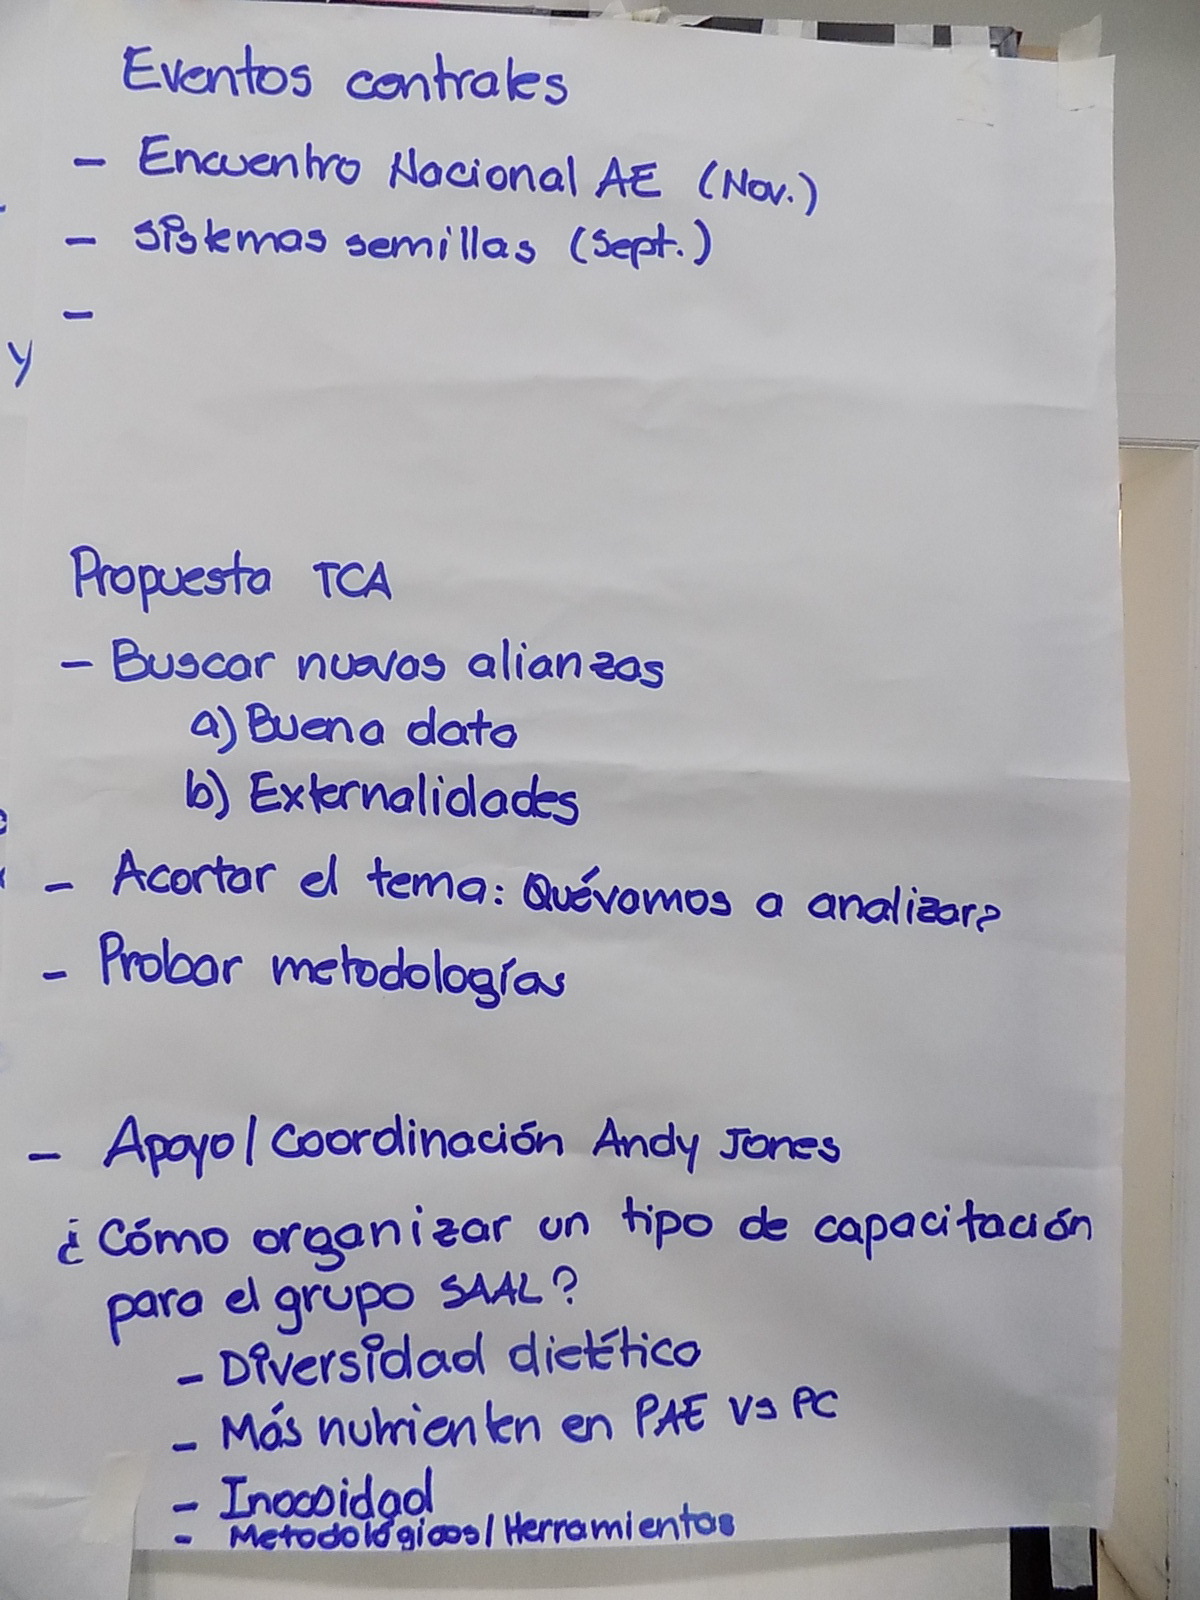 Eventos contrales
- Encuentro Nacional AE (Nov.)
- Sistemas semillas (Sept.)
-
y
Propuesta TCA
- Buscar nuevas alianzas
a) Buena data
b) Externalidades
- Acortar el tema: Qué vamos a analizar?
- Probar metodologías
- Apoyo/Coordinación Andy Jones
¿Cómo organizar un tipo de capacitación
para el grupo SAAL?
- Diversidad dietético
- Más nutrienten en PAE vs PC
- Inocoidad
- Metodológicos/Herramientas